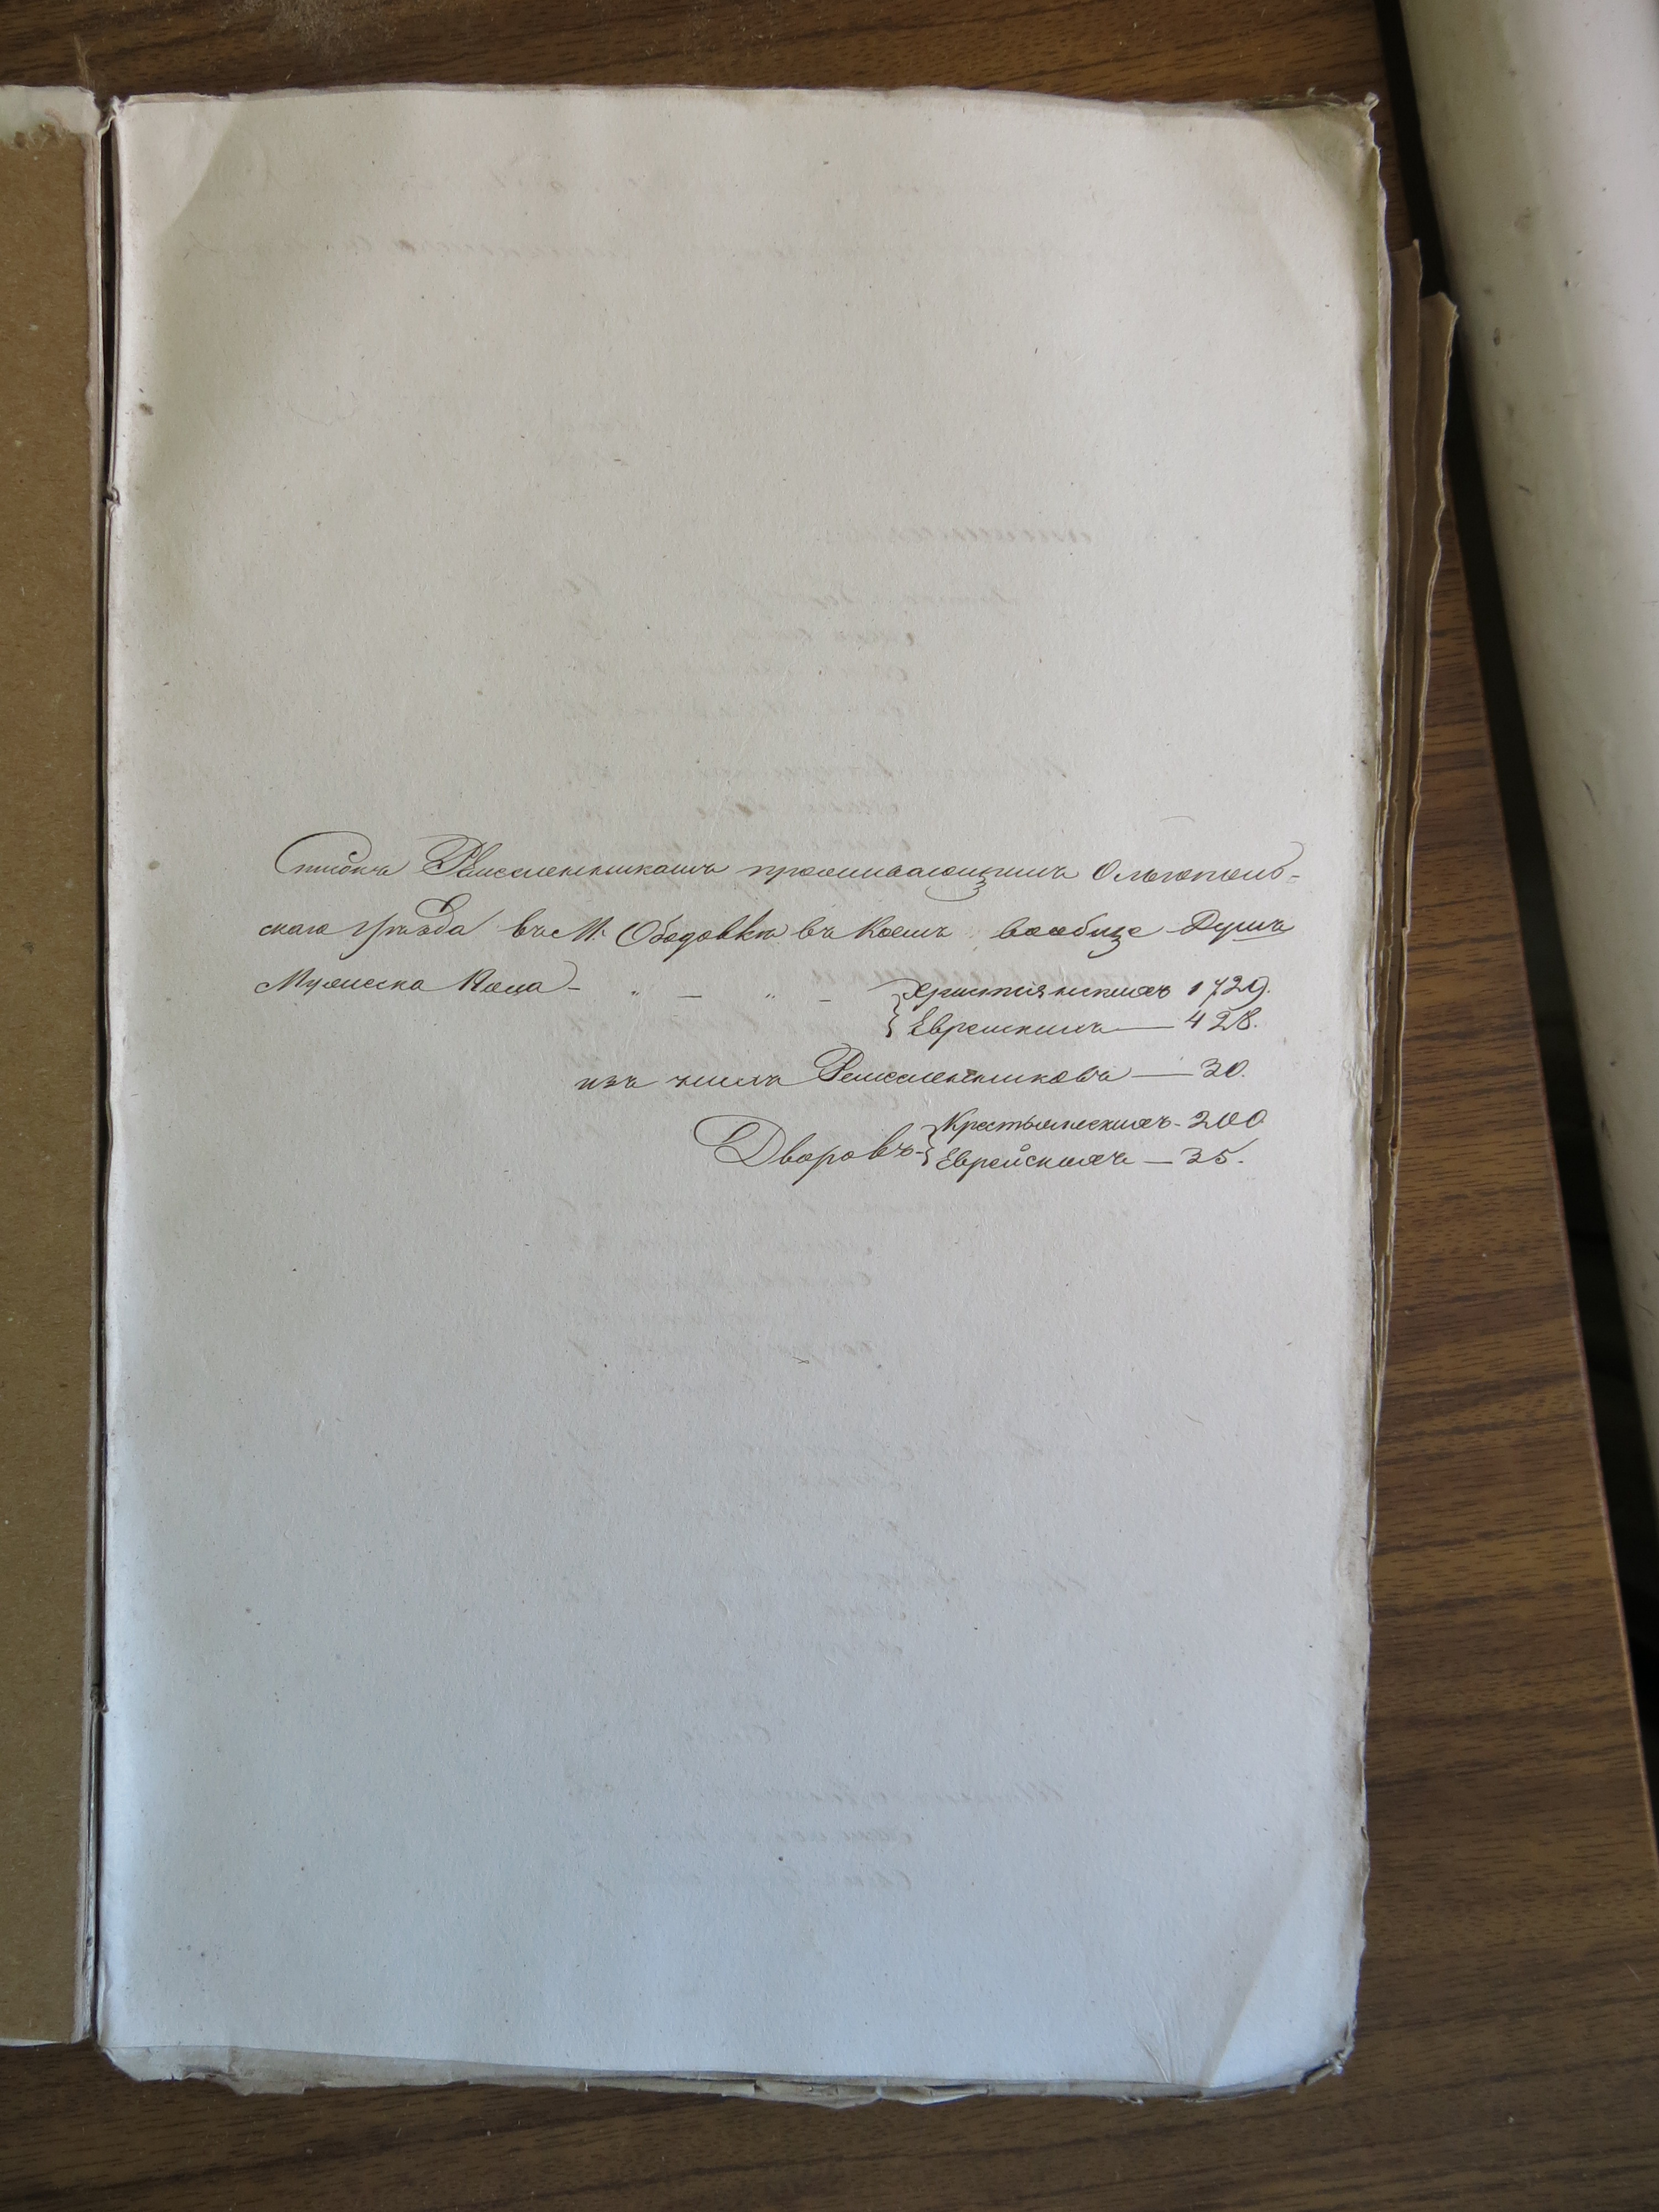 Списокъ Ремесленникамъ проживающимъ Ольгополь-
скаго уѣзда въ М. Ободовкѣ въ коемъ вообще Душъ
Мужеска Пола - " - " - { Христіянскихъ 1729.
{ Еврейскихъ — 428.
изъ числа Ремесленниковъ — 30.
Дворовъ - { Крестьянскихъ - 200
{ Еврейскихъ — 35.